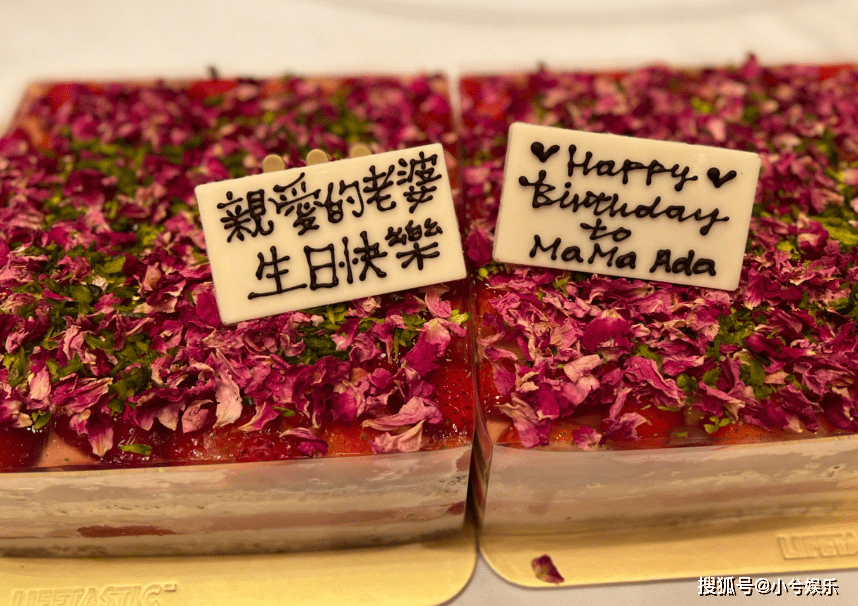 親愛的老婆
生日快樂
Happy
Birthday
to
MaMa Ada
LIFETASTIC™
LIFETAS
搜狐号@小兮娱乐